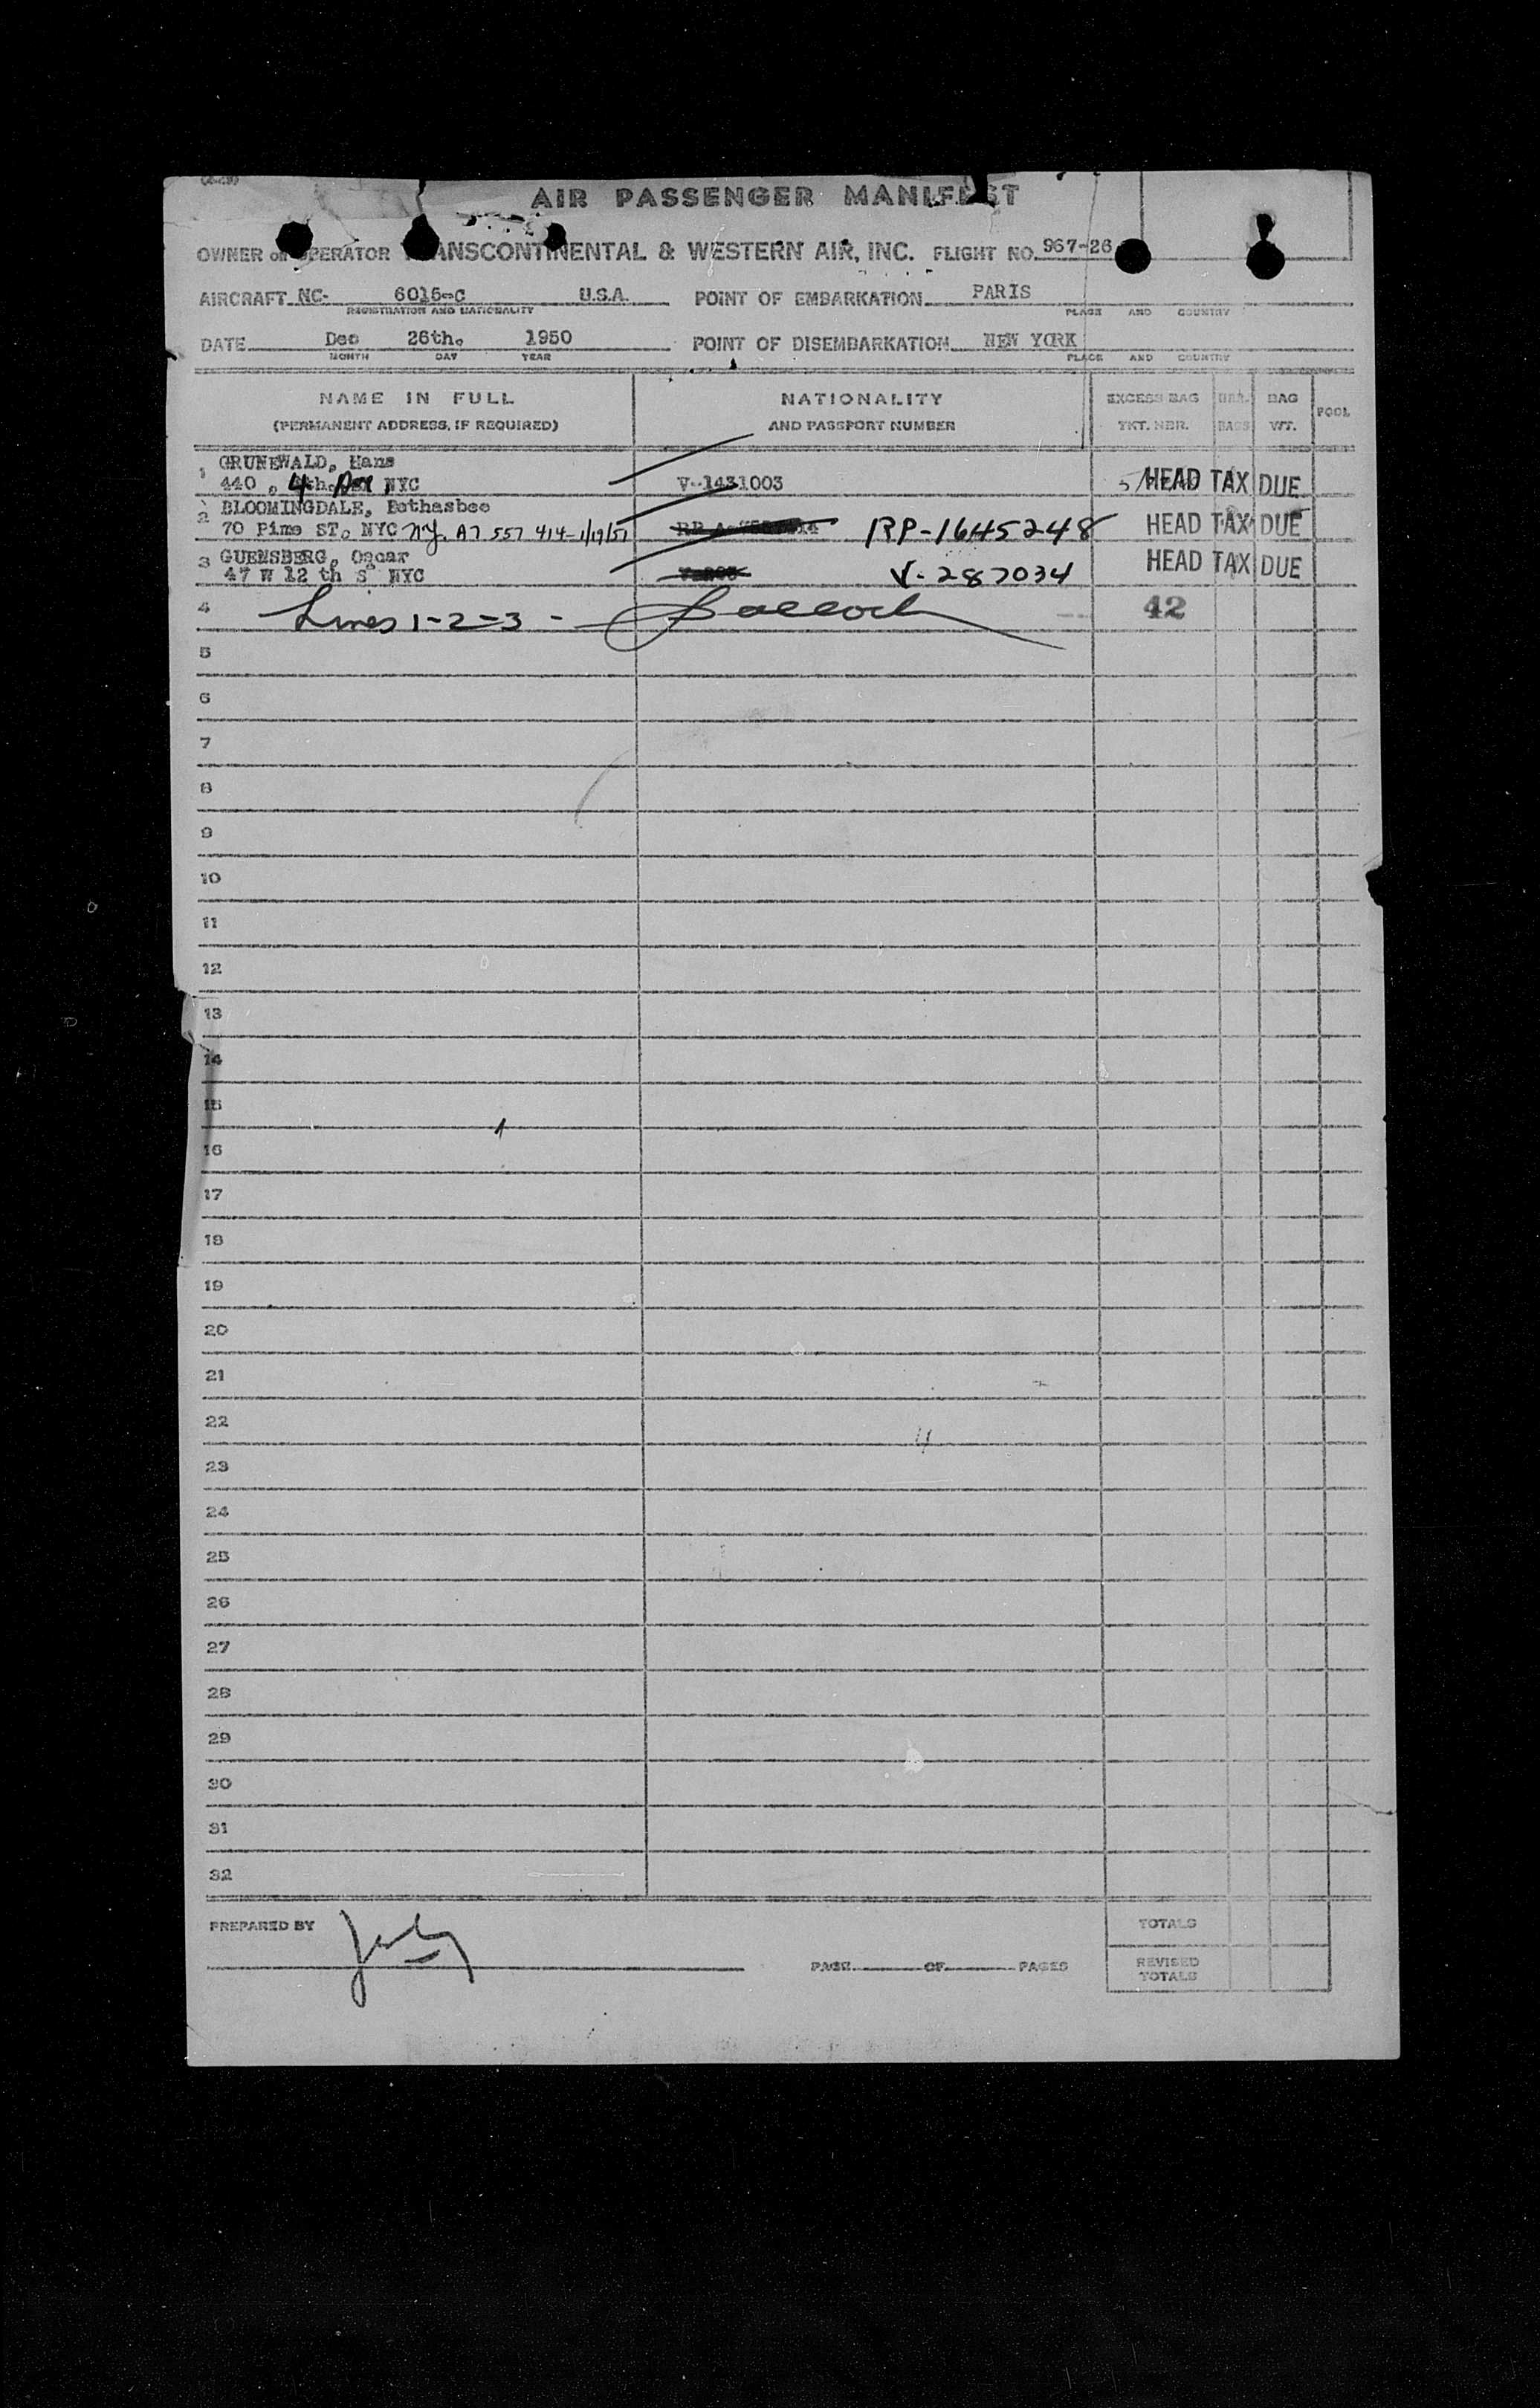 AIR PASSENGER MANIFEST
OWNER OR OPERATOR TRANSCONTINENTAL & WESTERN AIR, INC. FLIGHT NO. 967-26
AIRCRAFT NC- 6015-C U.S.A. POINT OF EMBARKATION PARIS
REGISTRATION AND NATIONALITY PLACE AND COUNTRY
DATE Dec 26th. 1950 POINT OF DISEMBARKATION NEW YORK
MONTH DAY YEAR PLACE AND COUNTRY
NAME IN FULL NATIONALITY EXCESS BAG BAG
(PERMANENT ADDRESS, IF REQUIRED) AND PASSPORT NUMBER TKT. NBR. BAGS WT. POOL
1 GRUNEWALD, Hans
440 , 4 th. NYC V-1431003 HEAD TAX DUE
2 BLOOMINGDALE, Bethasbee
70 Pine ST. NYC NY. A7 557 414-1/19/51 RP-1645248 HEAD TAX DUE
3 GUENSBERG, Oscar
47 W 12 th S NYC V-287034 HEAD TAX DUE
4 Lines 1-2-3 - 42
5
6
7
8
9
10
11
12
13
14
15
16
17
18
19
20
21
22
23
24
25
26
27
28
29
30
31
32
PREPARED BY TOTALS
PAGE OF PAGES REVISED
TOTALS